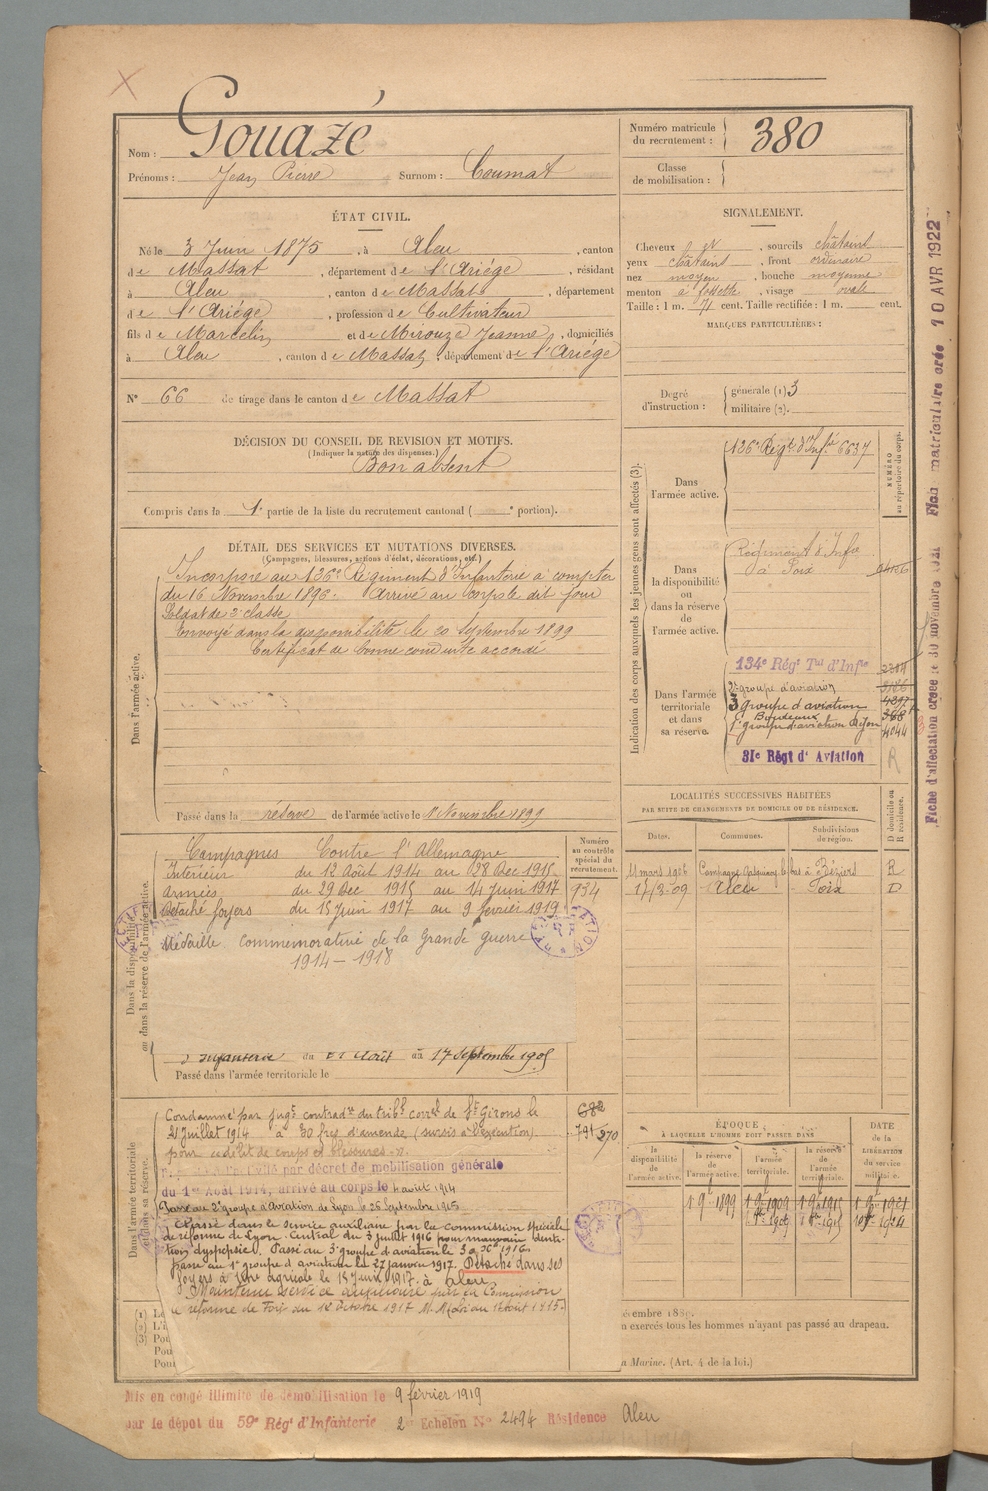 Nom : Gouazé
Prénoms : Jean Pierre Surnom : Coumat
Numéro matricule du recrutement : 380
Classe de mobilisation :
ÉTAT CIVIL.
Né le 3 Juin 1875, à Aleu, canton
de Massat, département de l'Ariége, résidant
à Aleu, canton de Massat, département
de l'Ariége, profession de Cultivateur
fils de Marcelin et de Mirouze Jeanne, domiciliés
à Aleu, canton de Massat, département de l'Ariége
N° 66 de tirage dans le canton de Massat
SIGNALEMENT.
Cheveux et, sourcils châtains
yeux châtains, front ordinaire
nez moyen, bouche moyenne
menton à fossette, visage ovale
Taille : 1 m. 71 cent. Taille rectifiée : 1 m. cent.
MARQUES PARTICULIÈRES :
Degré d'instruction : générale (1) 3
militaire (2).
DÉCISION DU CONSEIL DE REVISION ET MOTIFS.
(Indiquer la nature des dispenses.)
Bon absent
Compris dans la 1e partie de la liste du recrutement cantonal ( e portion).
DÉTAIL DES SERVICES ET MUTATIONS DIVERSES.
(Campagnes, blessures, actions d'éclat, décorations, etc.)
Dans l'armée active.
Incorporé au 136e Régiment d'Infanterie à compter
du 16 Novembre 1896. Arrivé au corps le dit jour
Soldat de 2e classe
Envoyé dans la disponibilité le 20 Septembre 1899
Certificat de bonne conduite accordé
Passé dans la réserve de l'armée active le 1r Novembre 1899
Indication des corps auxquels les jeunes gens sont affectés (3).
NUMÉRO au répertoire du corps.
Dans l'armée active.
136e Régt d'Infie 6637
Dans la disponibilité ou dans la réserve de l'armée active.
Régiment d'Infie
à Foix
Dans l'armée territoriale et dans sa réserve.
134e Régt Tal d'Infie
2e groupe d'aviation
3 groupe d'aviation
Bordeaux 368
1e groupe d'aviation Dijon 4044
31e Régt d'Aviation R
LOCALITÉS SUCCESSIVES HABITÉES
PAR SUITE DE CHANGEMENTS DE DOMICILE OU DE RÉSIDENCE.
Dates. Communes. Subdivisions de région. D domicile ou R résidence.
11 mars 1906 Béziers R
14/3-09 Aleu Foix D
Dans la disponibilité ou dans la réserve de l'armée active.
Numéro au contrôle spécial du recrutement.
Campagnes Contre l'Allemagne
Intérieur du 12 Août 1914 au 28 Dec 1915
Armées du 29 Dec 1915 au 14 Juin 1917 934
Détaché foyers du 15 Juin 1917 au 9 février 1919
Médaille commémorative de la Grande guerre
1914 – 1918
d'Infanterie du 21 Août au 17 Septembre 1905
Passé dans l'armée territoriale le
Dans l'armée territoriale et dans sa réserve.
Condamné par jugt contradre du tribl correl de St Girons le 682
21 Juillet 1914 à 30 frcs d'amende (sursis à l'exécution) 791 270
pour le délit de coups et blessures.
par décret de mobilisation générale
du 1er Août 1914, arrivé au corps le août 1914
Passé au 2e groupe d'Aviation de Lyon le 25 Septembre 1915
Classé dans le service auxiliaire par la Commission spéciale
de réforme de Lyon Central du 3 juillet 1916 pour mauvaise denti-
tion, dyspepsie. Passé au 3e groupe d'aviation le 3 Xe 1916.
Passé au 1er groupe d'aviation le 27 janvier 1917. Détaché dans ses
foyers à titre agricole le 15 Juin 1917. à Aleu
Maintenu service auxiliaire par la Commission
de réforme de Foix du 12 Octobre 1917
ÉPOQUE
À LAQUELLE L'HOMME DOIT PASSER DANS
la disponibilité de l'armée active. la réserve de l'armée active. l'armée territoriale. la réserve de l'armée territoriale. DATE de la LIBÉRATION du service militaire.
1 9e 1899 1 9e 1909 1 9e 1915 1 9e 1921
exercés tous les hommes n'ayant pas passé au drapeau.
Marine. (Art. 4 de la loi.)
Mis en congé illimité de démobilisation le 9 février 1919
par le dépôt du 59e Régt d'Infanterie 2e Echelon N° 2494 Résidence Aleu
Fiche d'affectation créée le 30 novembre 1921 Fich matriculaire crée 10 AVR 1922